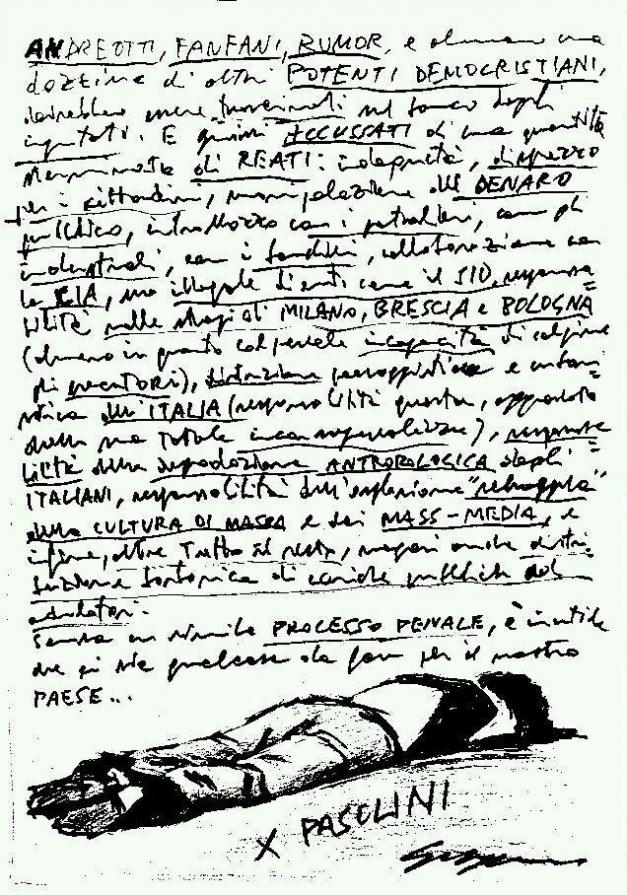 ANDREOTTI, FANFANI, RUMOR, e almeno una
dozzina di altri POTENTI DEMOCRISTIANI,
dovrebbero essere trascinati sul banco degli
imputati. E quivi ACCUSSATI di una quantità
sterminata di REATI: indegnità, disprezzo
per i cittadini, manipolazione del DENARO
pubblico, intrallazzo con i petrolieri, con gli
industriali, con i banchieri, collaborazione con
la CIA, uso illegale di enti come il SID, responsa=
bilità nelle stragi di MILANO, BRESCIA e BOLOGNA
(almeno in quanto colpevole incapacità di colpirne
gli esecutori), distruzione paesaggistica e urbani=
stica dell'ITALIA (responsabilità questa, appesantita
dalla sua totale), responsa=
bilità della degradazione ANTROPOLOGICA degli
ITALIANI, responsabilità dell'esplosione "selvaggia"
della CULTURA DI MASSA e dei MASS-MEDIA, e
infine, oltre tutto il resto, magari anche distri=
buzione borbonica di cariche pubbliche ad
adulatori.
Senza un simile PROCESSO PENALE, è inutile
che ci sia qualcosa da fare per il nostro
PAESE...
X PASOLINI